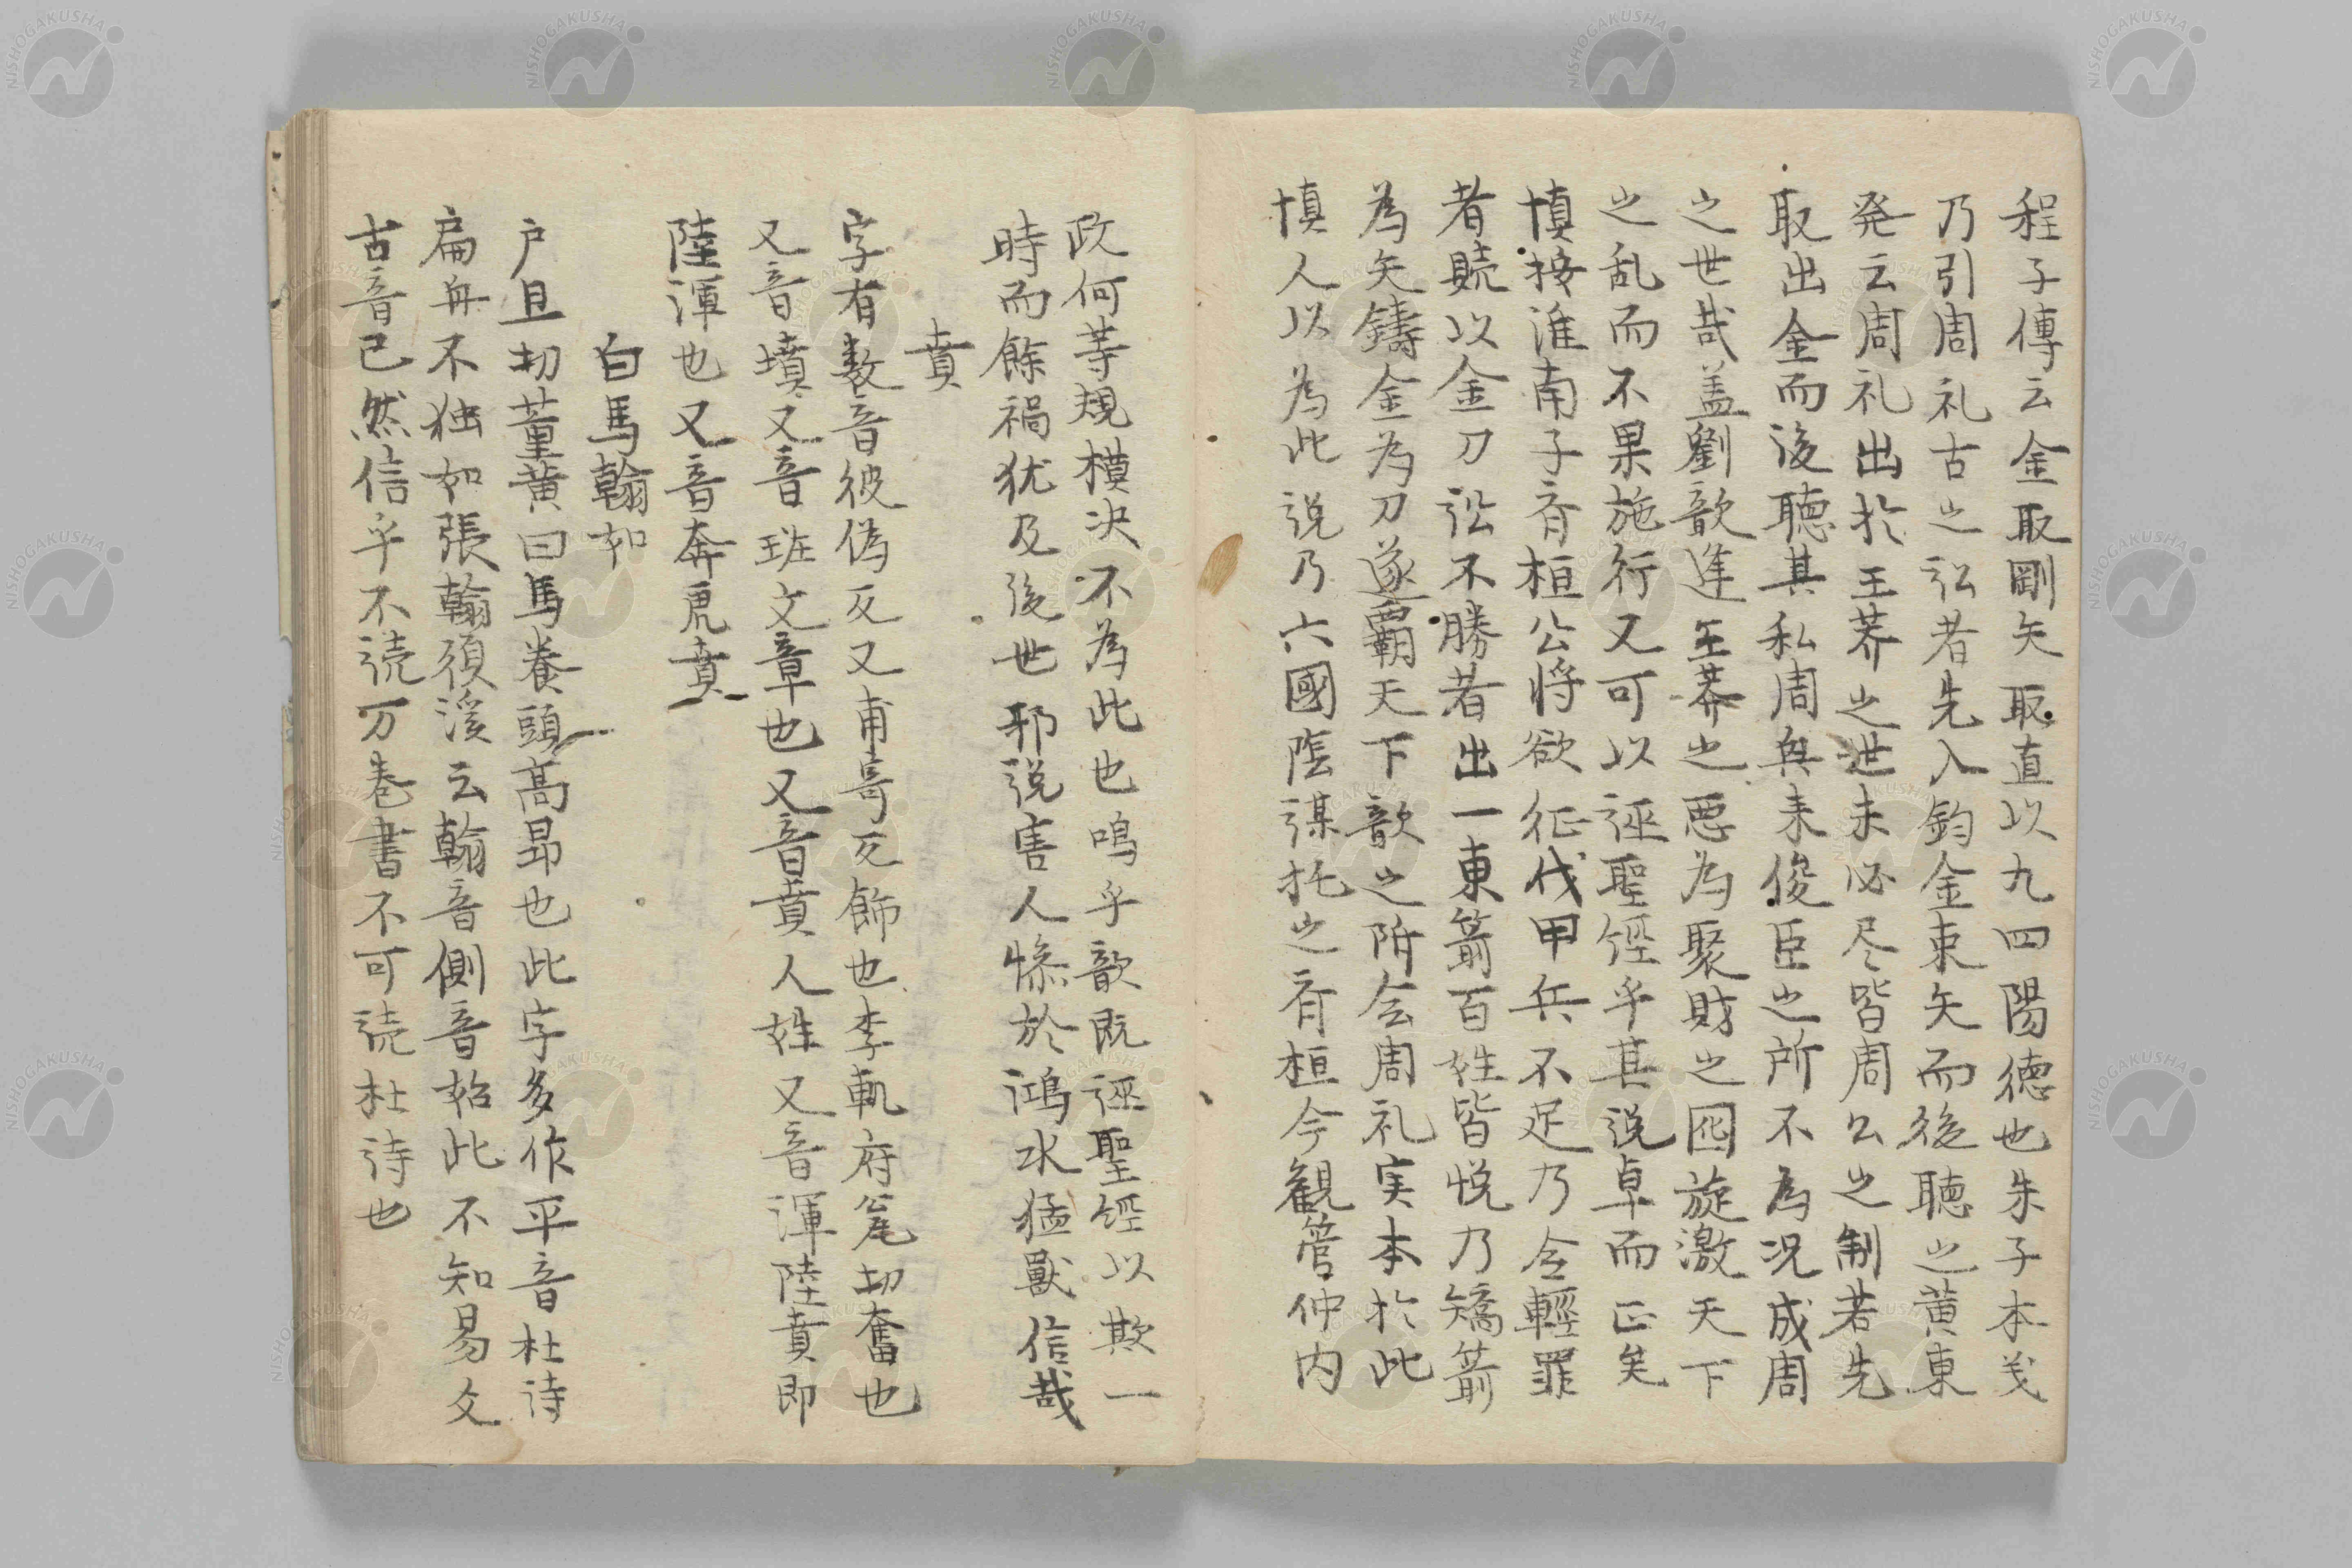 程子傳云金取剛矢取直以九四陽德也朱子本义
乃引周礼古之訟者先入鈞金束矢而後聽之黄東
発云周礼出於王莽之世未必尽皆周公之制若先
取出金而後聽其私周興来俊臣之所不為况成周
之世哉盖劉歆逢王莽之悪為聚財之囮旋激天下
之乱而不果施行又可以誣聖経乎其説卓而正矣
慎按淮南子斉桓公将欲征伐甲兵不足乃令軽罪
者贖以金刀訟不勝者出一束箭百姓皆悦乃矯箭
為矢鑄金為刀遂覇天下歆之所会周礼実本於此
慎人以為此説乃六國陰謀托之斉桓今観管仲内
政何等規模决不為此也嗚乎歆既誣聖経以欺一
時而餘禍犹及後世邪説害人慘於鴻水猛獸信哉
賁
字有数音彼偽反又甫寄反飾也李軌府瓮切奮也
又音墳又音班文章也又音賁人姓又音渾陸賁即
陸渾也又音奔虎賁
白馬翰如
户旦切董黄曰馬養頭高昂也此字多作平音杜诗
扁舟不独如張翰須溪云翰音側音始此不知易文
古音已然信乎不読万巻書不可読杜诗也
NISHOGAKUSHA